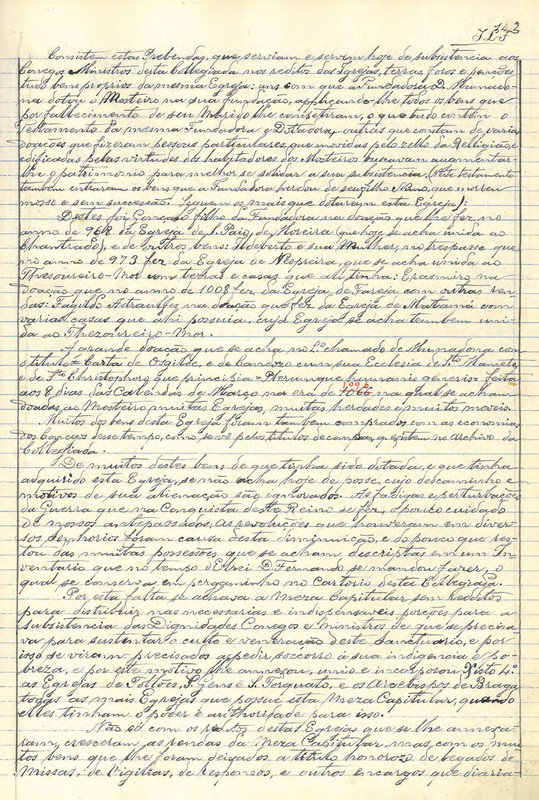 Consistem estas Prebendas, que serviam e servem hoje de subsistencia aos
Conegos Ministros desta Collegiada nos reditos das Igrejas, terras foros e pensões
tudo bens proprios da mesma Egreja: uns com que a Fundadora D. Mumado-
na dotou o Mosteiro na sua Fundação, applicando-lhe todos os bens que
por fallecimento de seu Marido lhe competiram, o que tudo contem o
Testamento da mesma Fundadora e Dotadora, outras que constam de varias
doações que fizeram pessoas particulares, que movidas pelo zello da Religião, e
edificadas pelas virtudes dos habitadores dos Mosteiros buscavam augmentar-
lhe o patrimonio para melhor se solidar a sua subsistencia, (Neste testamento
tambem entraram os bens que a Fundadora herdou de seu filho Nuno, que morreu
moço e sem successão. Seguem os mais que dotaram esta Egreja):
Destes foi Gonçalo filho da Fundadora na doação que lhe fez no
anno de 968 da Egreja de S. Paio de Moreira (que hoje se acha unida ao
Chantrado), e de outros bens: Adeberto e sua Mulher, no trespasse que
no anno de 973 fez da Egreja de Nespreira, que se acha unida ao
Thesoureiro-Mor com terras e casas que ali tinha: Erasmiro na
doação que no anno de 1008 fez da Egreja de Fareja com outras ren-
das: Fagildo Astraufes na doação que fez da Egreja de Matamá com
varias casas que ahi possuia, cuja Egreja se acha tambem uni-
da ao Thezoureiro-Mor.
A grande doação que se acha no L.º chamado de Mumadona com
o titulo = Carta de Osgilde, e de Gandozo cum sua Ecclesia de S.ta Marinha
e de S.to Christophoro que principia = Plerumque humanis generis = feita
aos 8 dias das Calendas de Março na era de 1066 na qual se acham
doadas ao Mosteiro muitas Egrejas, muitas herdades e muitos moveis.
Muitos dos bens desta Egreja foram tambem comprados com as economias
dos Conegos desse tempo, como se vê pelos titulos de compras, q. existem no archivo da
Collegiada.
De muitos destes bens de que tinha sido dotada, e que tinha
adquirido esta Egreja, se não acha hoje de posse, cujo descaminho e
motivos de sua alienação são ignorados. As fadigas e perturbações
da Guerra que na Conquista deste Reino se fez, o pouco cuidado
de nossos antepassados, as revoluções que houveram em diver-
sos senhorios foram causa desta diminuição, e do pouco que res-
tou das muitas possessões que se acham descriptas em um In-
ventario que no tempo d'Elrei D. Fernando se mandou fazer, o
qual se conserva em pergaminho no Cartorio desta Collegiada.
Por esta falta se achava a Meza Capitular sem redditos
para distribuir nas necessarias e indispensaveis porções para a
subsistencia das Dignidades Conegos e Ministros de que se precisa-
va para sustentar o culto e veneração deste Sanctuario, e por
isso se viram precisados a pedir soccorro á sua indigencia e po-
breza, e por este motivo lhe annexou, unio e incorporou Xisto 4.º
as Egrejas de Folhões, S. Gens e S. Torquato, e os Arcebispos de Braga
todas as mais Egrejas que possue esta Meza Capitular, quando
elles tinham o poder e authoridade para isso.
Não só com os red.tos destas Egrejas que se lhe annexa-
ram, cresceram as rendas da Meza Capitular, mas com os mui-
tos bens que lhe foram deixados a titulo honorozo de legados de
Missas, de Vigilias, de Responsos, e outros encargos que diaria-